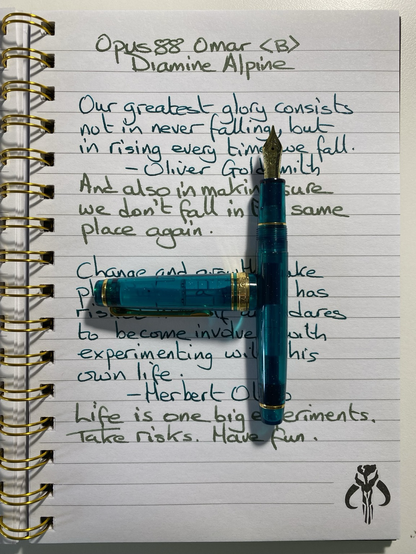 Opus 88 Omar <B>
Diamine Alpine
Our greatest glory consists
not in never falling, but
in rising every time we fall.
- Oliver Goldsmith
And also in making sure
we don't fall in same
place again.
Change and
has
dares
to become with
experimenting his
own life.
- Herbert
Life is one big experiments.
Take risks. Have fun.